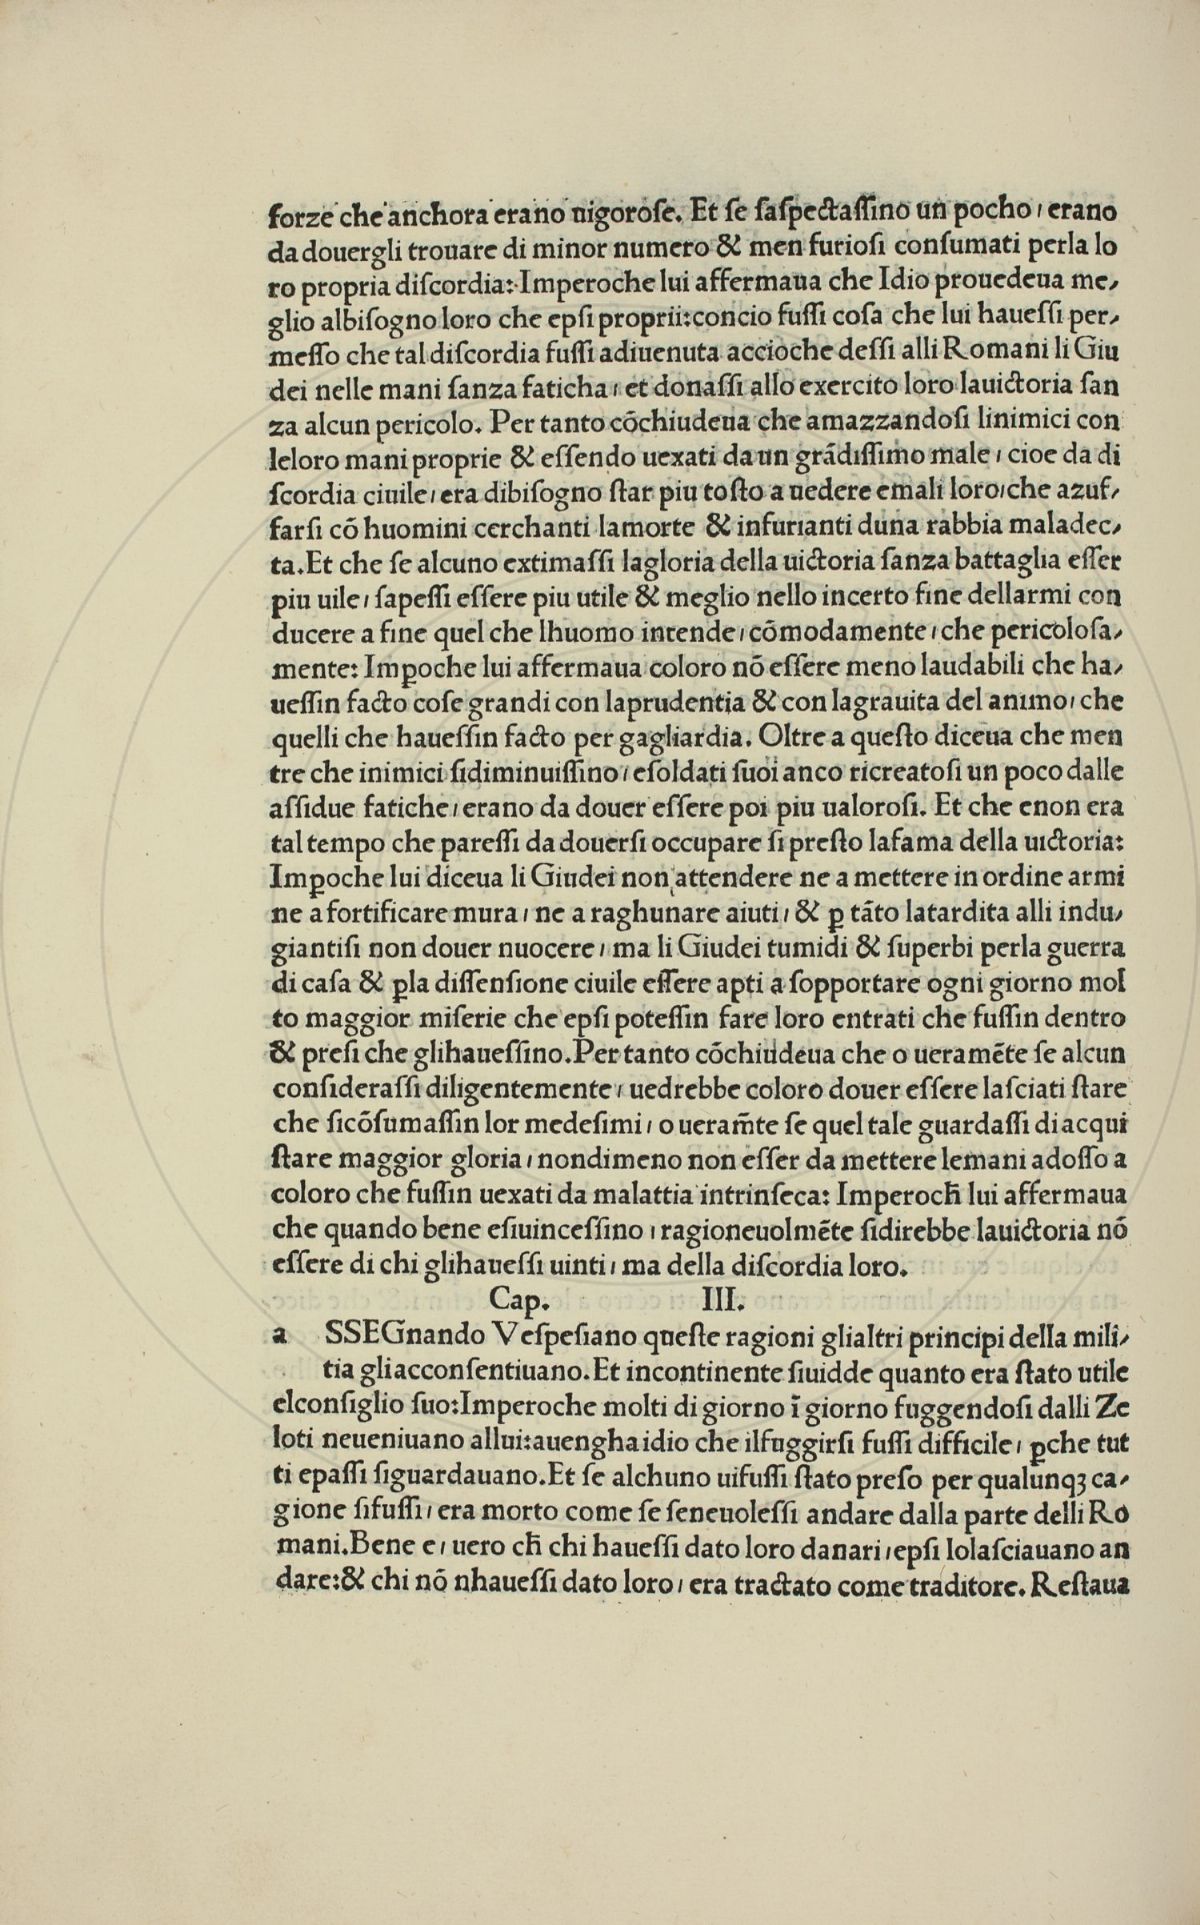 forze che anchora erano uigorose. Et se saspectassino un pocho, erano
da douergli trouare di minor numero & men furiosi consumati perla lo
ro propria discordia: Imperoche lui affermaua che Idio prouedeua me-
glio albisogno loro che epsi proprii: concio fussi cosa che lui hauessi per-
messo che tal discordia fussi adiuenuta accioche dessi alli Romani li Giu
dei nelle mani sanza faticha, et donassi allo exercito loro lauictoria san
za alcun pericolo. Per tanto cõchiudeua che amazzandosi linimici con
leloro mani proprie & essendo uexati da un grãdissimo male, cioe da di
scordia ciuile, era dibisogno star piu tosto a uedere emali loro, che azuf-
farsi cõ huomini cerchanti lamorte & infurianti duna rabbia maladec-
ta. Et che se alcuno extimassi lagloria della uictoria sanza battaglia esser
piu uile, sapessi essere piu utile & meglio nello incerto fine dellarmi con
ducere a fine quel che lhuomo intende, cõmodamente, che pericolosa-
mente: Imꝑoche lui affermaua coloro nõ essere meno laudabili che ha-
uessin facto cose grandi con laprudentia & con lagrauita del animo, che
quelli che hauessin facto per gagliardia. Oltre a questo diceua che men
tre che inimici sidiminuissino, esoldati suoi anco ricreatosi un poco dalle
assidue fatiche, erano da douer essere poi piu ualorosi. Et che enon era
tal tempo che paressi da douersi occupare si presto lafama della uictoria:
Imꝑoche lui diceua li Giudei non attendere ne a mettere in ordine armi
ne a fortificare mura, ne a raghunare aiuti, & ꝑ tãto latardita alli indu-
giantisi non douer nuocere, ma li Giudei tumidi & superbi perla guerra
di casa & ꝑla dissensione ciuile essere apti a sopportare ogni giorno mol
to maggior miserie che epsi potessin fare loro entrati che fussin dentro
& presi che glihauessino. Per tanto cõchiudeua che o ueramẽte se alcun
considerassi diligentemente, uedrebbe coloro douer essere lasciati stare
che sicõsumassin lor medesimi, o ueram̃te se quel tale guardassi di acqui
stare maggior gloria, nondimeno non esser da mettere lemani adosso a
coloro che fussin uexati da malattia intrinseca: Imperoch̃ lui affermaua
che quando bene esiuincessino, ragioneuolmẽte sidirebbe lauictoria nõ
essere di chi glihauessi uinti, ma della discordia loro.
Cap. III.
a SSEGnando Vespesiano queste ragioni glialtri principi della mili-
tia gliacconsentiuano. Et incontinente siuidde quanto era stato utile
elconsiglio suo: Imperoche molti di giorno ĩ giorno fuggendosi dalli Ze
loti neueniuano allui: auengha idio che ilfuggirsi fussi difficile, ꝑche tut
ti epassi siguardauano. Et se alchuno uifussi stato preso per qualunqꝫ ca-
gione sifussi, era morto come se seneuolessi andare dalla parte delli Ro
mani. Bene e, uero ch̃ chi hauessi dato loro danari, epsi lolasciauano an
dare: & chi nõ nhauessi dato loro, era tractato come traditore. Restaua